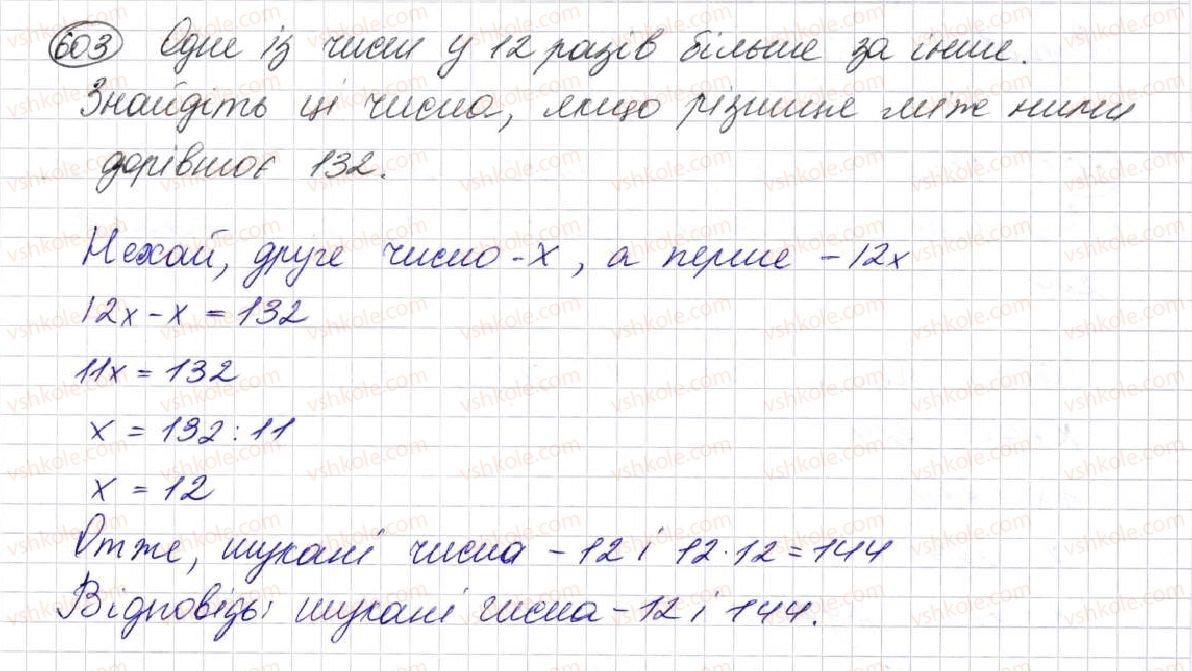 603 Одне із чисел у 12 разів більше за інше.
Знайдіть ці числа, якщо різниця між ними
дорівнює 132.
Нехай, друге число - x, а перше - 12x
12x - x = 132
11x = 132
x = 132 : 11
x = 12
Отже, шукані числа - 12 і 12 · 12 = 144
Відповідь: шукані числа - 12 і 144.